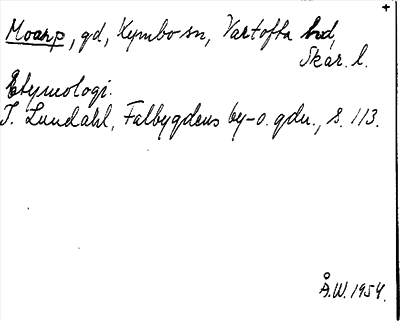 +
Moarp, gd, Kymbo sn, Vartofta hd,
Skar. l.
Etymologi.
I. Lundahl, Falbygdens by- o. gdn., s. 113.
Å.W. 1954.